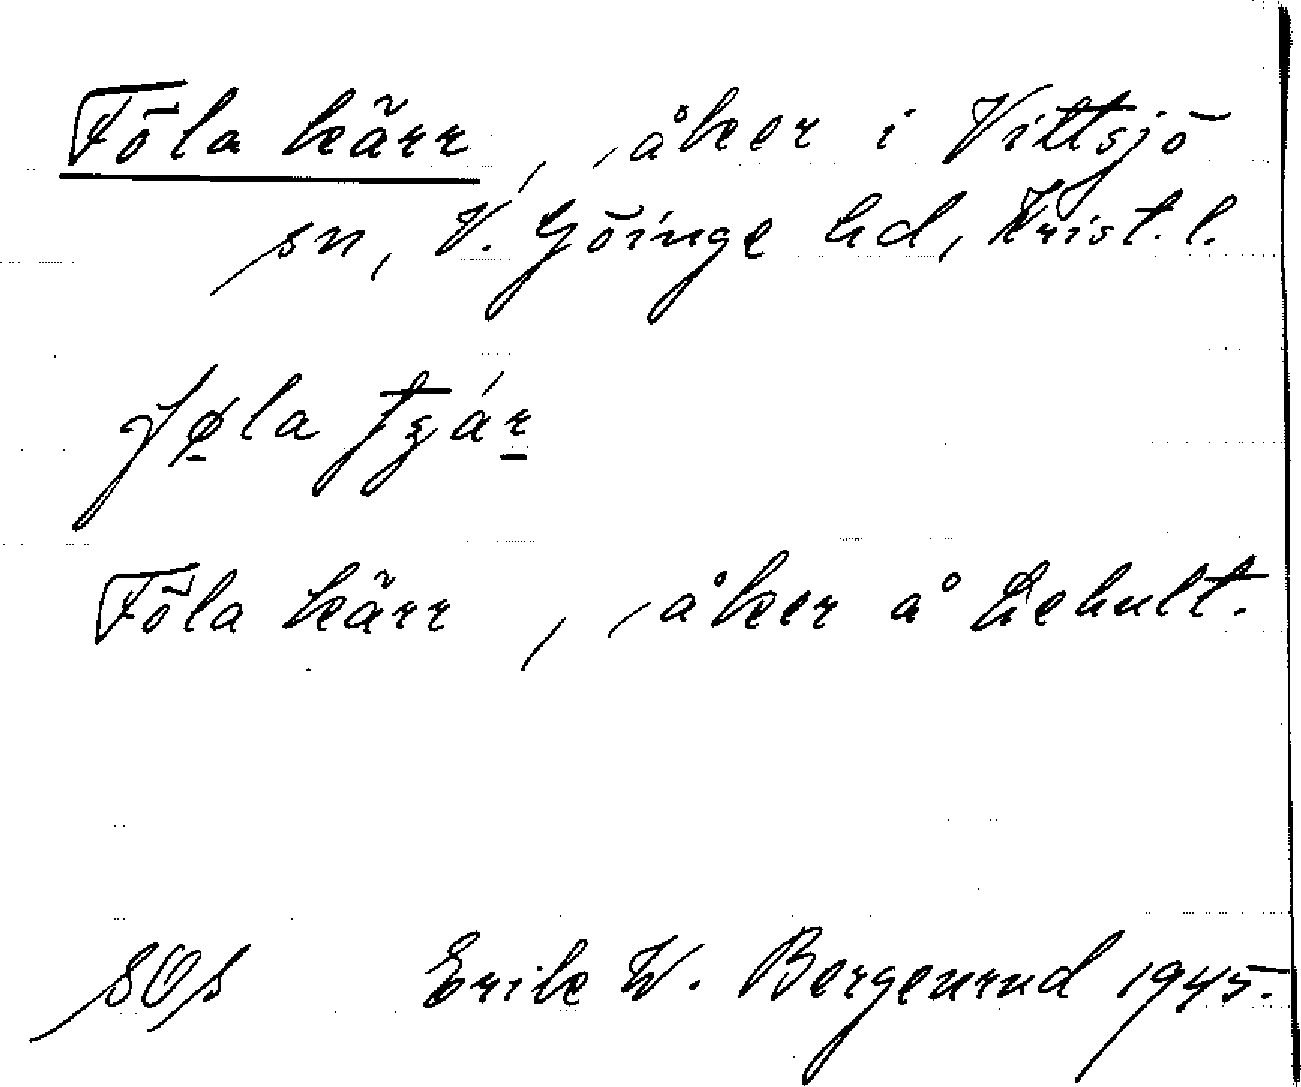 Föla kärr, åker i Vittsjö
sn, V. Göinge hd, Krist. l.
fø̱la tʒár̲
Föla kärr, åker å Lehult.
SOS Erik W. Bergenrud 1945.